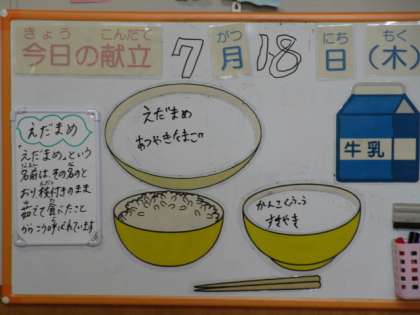 きょう こんだて
今日の献立
7
がつ
月
18
にち
日
もく
(木)
えだまめ
「えだまめ」という
名前は、その名のと
おり、枝付きのまま
茹でて食べたこと
からこう呼ばれています
えだまめ
あつやきたまご
かんこくふう
すきやき
牛乳